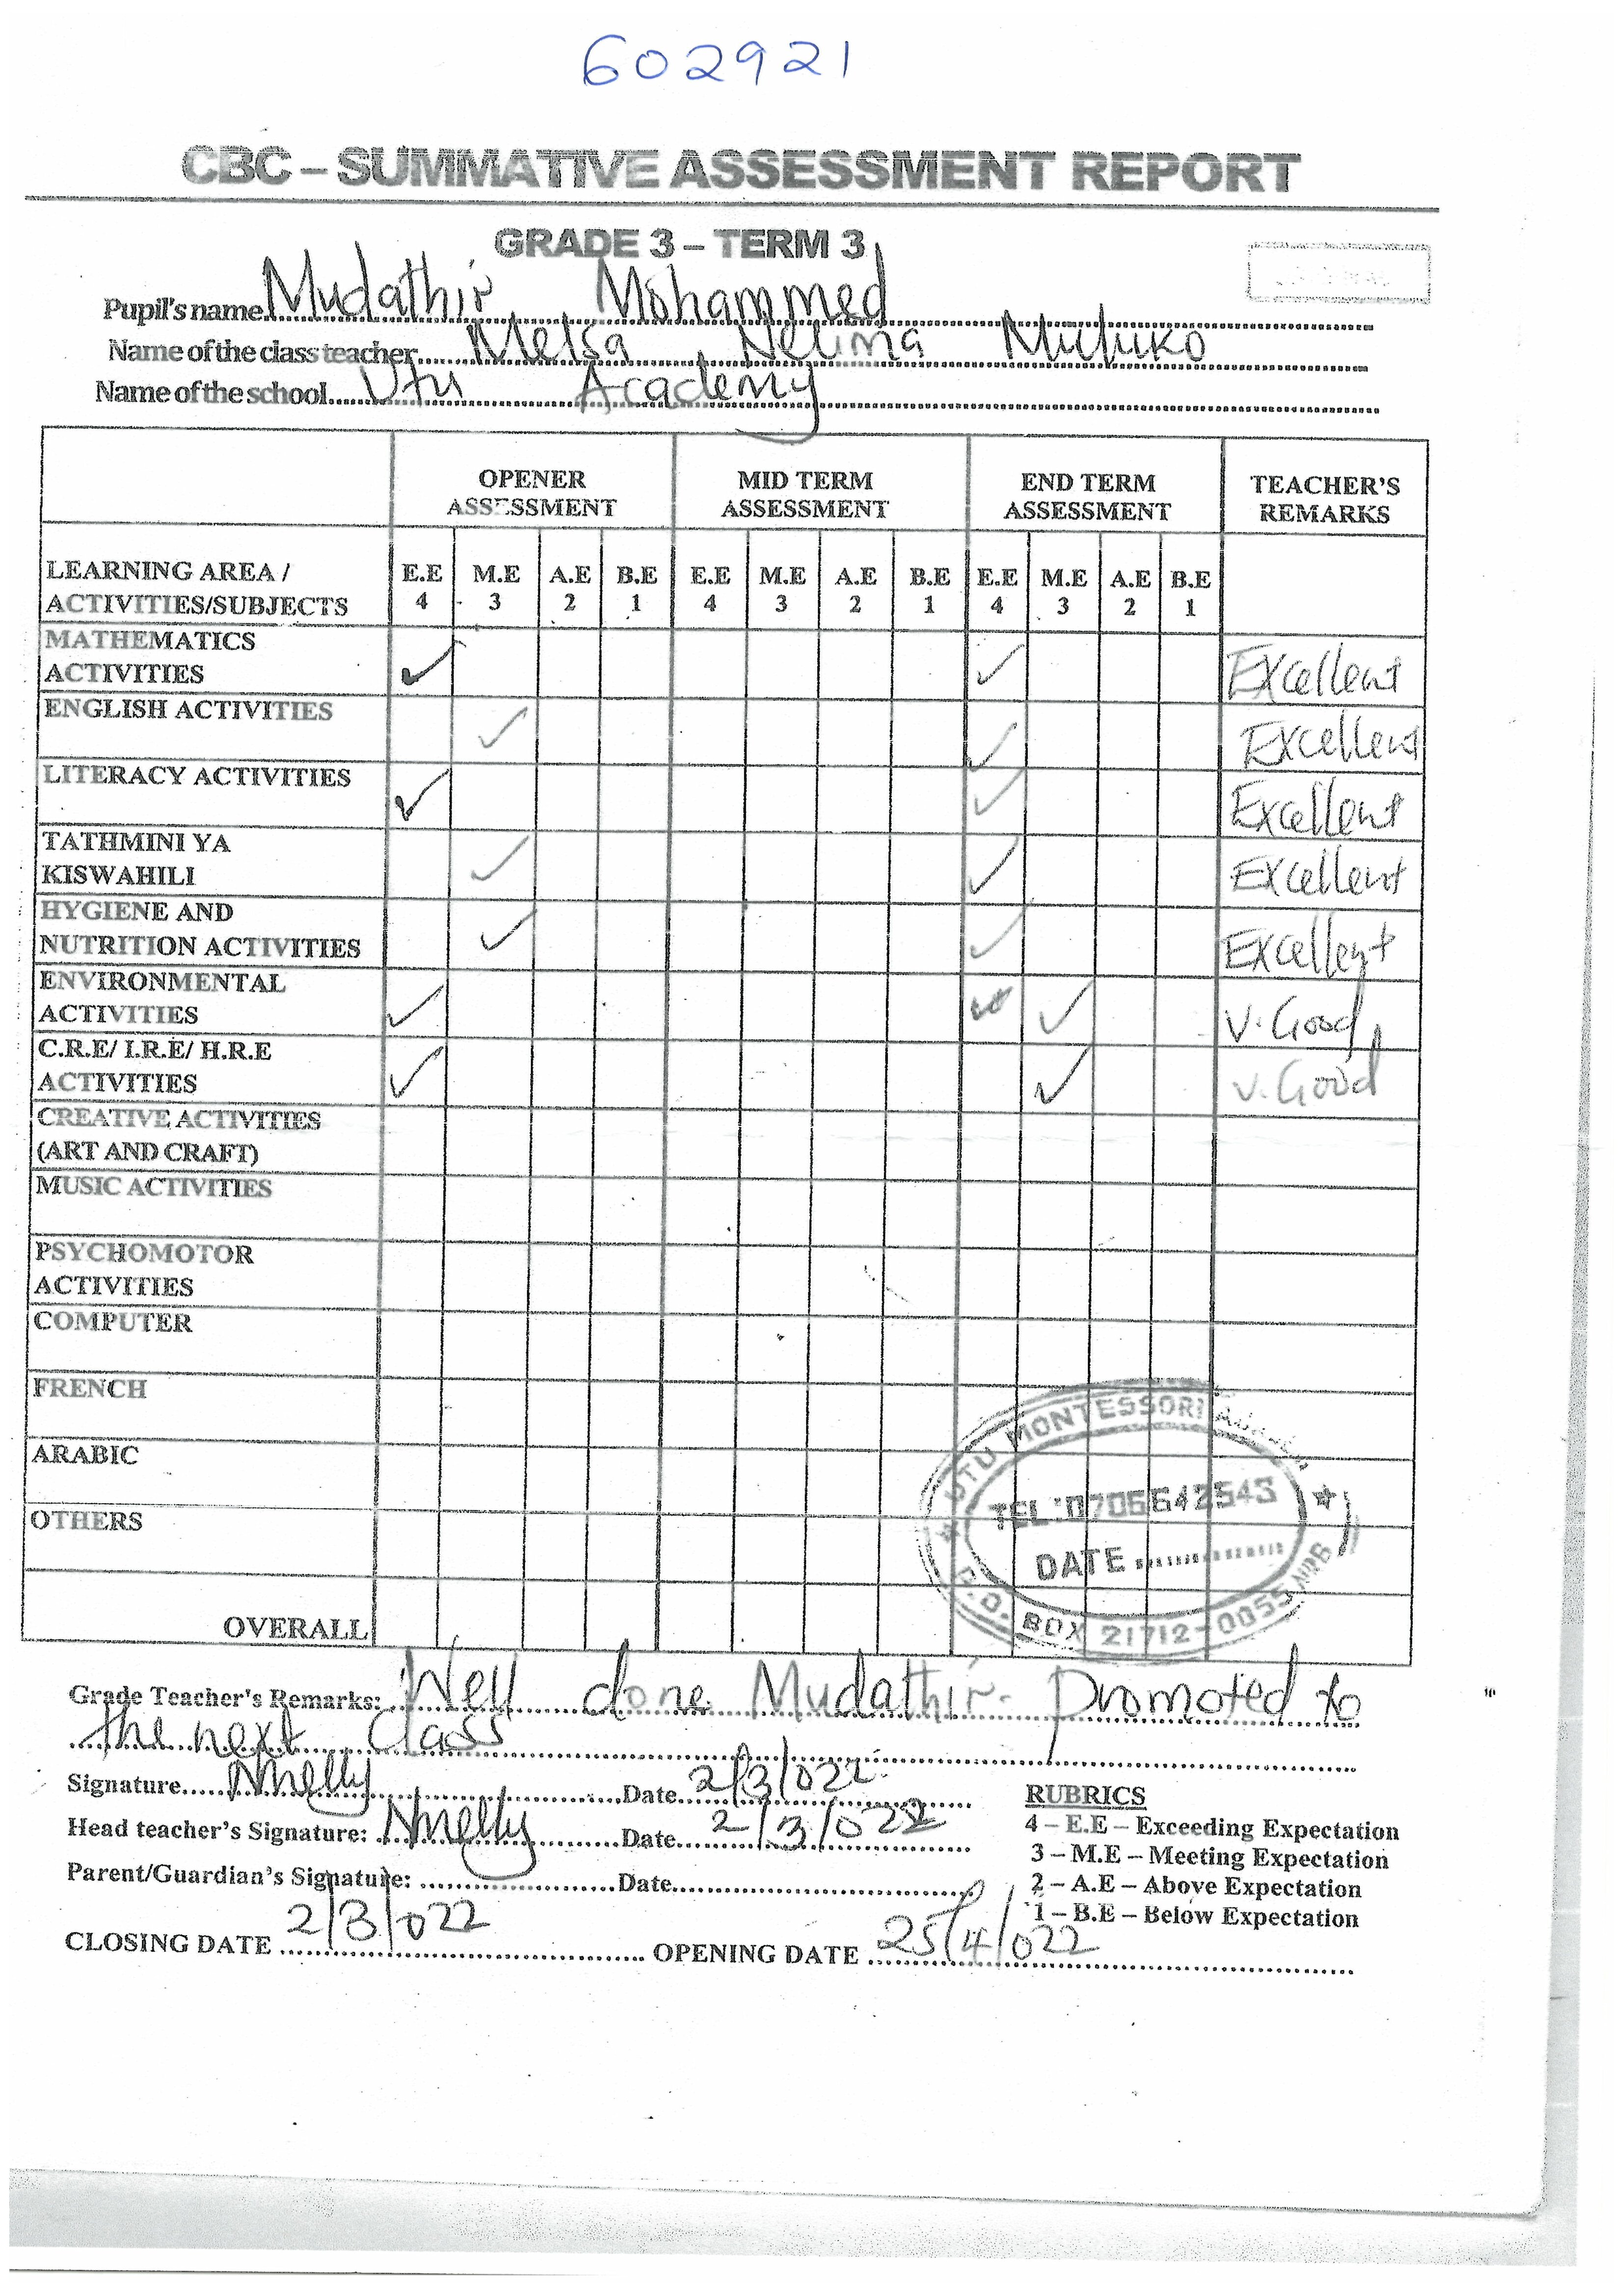 602921
CBC – SUMMATIVE ASSESSMENT REPORT
GRADE 3 – TERM 3
Pupil's name Mudathir Mohammed
Name of the class teacher Nelima
Name of the school Utu Academy
OPENER ASSESSMENT MID TERM ASSESSMENT END TERM ASSESSMENT TEACHER'S REMARKS
LEARNING AREA / ACTIVITIES/SUBJECTS E.E 4 M.E 3 A.E 2 B.E 1 E.E 4 M.E 3 A.E 2 B.E 1 E.E 4 M.E 3 A.E 2 B.E 1
MATHEMATICS ACTIVITIES ✓ ✓ Excellent
ENGLISH ACTIVITIES ✓ ✓ Excellent
LITERACY ACTIVITIES ✓ ✓ Excellent
TATHMINI YA KISWAHILI ✓ ✓ Excellent
HYGIENE AND NUTRITION ACTIVITIES ✓ ✓ Excellent
ENVIRONMENTAL ACTIVITIES ✓ ✓ V. Good
C.R.E/ I.R.E/ H.R.E ACTIVITIES ✓ ✓ V. Good
CREATIVE ACTIVITIES (ART AND CRAFT)
MUSIC ACTIVITIES
PSYCHOMOTOR ACTIVITIES
COMPUTER
FRENCH
ARABIC
OTHERS
OVERALL
UTU MONTESSORI
TEL: 0706642543
DATE
P.O. BOX 21712-0055
Grade Teacher's Remarks: Well done Mudathir. Promoted to
the next class
Signature Date 2/3/022
Head teacher's Signature: Date 2/3/022
Parent/Guardian's Signature: Date
CLOSING DATE 2/3/022 OPENING DATE 25/4/022
RUBRICS
4 – E.E – Exceeding Expectation
3 – M.E – Meeting Expectation
2 – A.E – Above Expectation
1 – B.E – Below Expectation